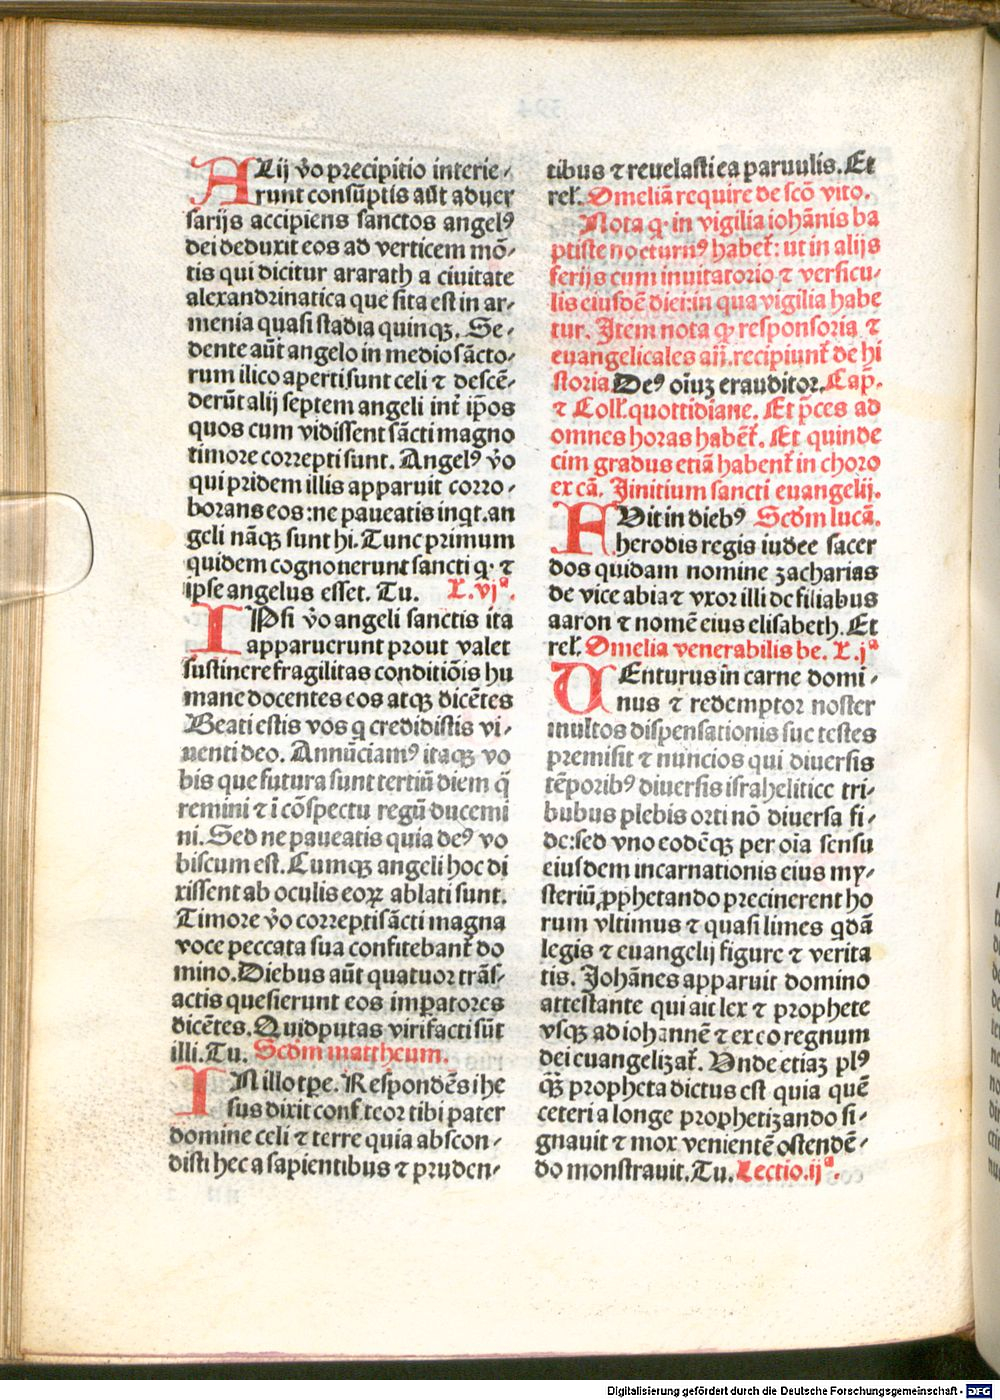 ALij v̄o precipitio interie⸗
runt consūptis aūt aduer
sarijs accipiens sanctos angelꝰ
dei deduxit eos ad verticem mō⸗
tis qui dicitur ararath a ciuitate
alexandrinatica que sita est in ar⸗
menia quasi stadia quinqꝫ. Se⸗
dente aūt angelo in medio sācto⸗
rum ilico aperti sunt celi ⁊ descē⸗
derūt alij septem angeli int̄ ip̄os
quos cum vidissent sācti magno
timore correpti sunt. Angelꝰ v̄o
qui pridem illis apparuit corro⸗
borans eos: ne paueatis inqt. an
geli nāqꝫ sunt hi. Tunc primum
quidem cognouerunt sancti q· ⁊
ipse angelus esset. Tu. L. vjª.
IPsi v̄o angeli sanctis ita
apparuerunt prout valet
sustinere fragilitas conditiōis hu
mane docentes eos atqꝫ dicētes
Beati estis vos q credidistis vi⸗
uenti deo. Annūciamꝰ itaqꝫ vo
bis que futura sunt tertiū diem q̄
remini ⁊ i cōspectu regū ducemi
ni. Sed ne paueatis quia deꝰ vo
biscum est. Cumqꝫ angeli hoc di
xissent ab oculis eoꝝ ablati sunt.
Timore v̄o correpti sācti magna
voce peccata sua confitebant̄ do
mino. Diebus aūt quatuor trās⸗
actis quesierunt eos imꝑatores
dicētes. Quid putas viri facti sūt
illi. Tu. Scdm mattheum.
IN illo tpe. Respondēs ihe
sus dixit confiteor tibi pater
domine celi ⁊ terre quia abscon⸗
disti hec a sapientibus ⁊ pruden⸗
tibus ⁊ reuelasti ea paruulis. Et
rel̄. Omeliā require de scō vito.
Nota q· in vigilia iohānis ba
ptiste nocturnꝰ habet̄: ut in alijs
ferijs cum inuitatorio ⁊ versicu⸗
lis eiusdē diei: in qua vigilia habe
tur. Item nota ꝙ responsoria ⁊
euangelicales añ. recipiunt̄ de hi
storia Deꝰ oīuꝫ exauditor. Cap̄.
⁊ Coll̄. quottidiane. Et p̄ces ad
omnes horas habēt̄. Et quinde
cim gradus etiā habent̄ in choro
ex cā. Jinitium sancti euangelij.
FVit in diebꝰ Scdm lucā.
herodis regis iudee sacer
dos quidam nomine zacharias
de vice abia ⁊ vxor illi de filiabus
aaron ⁊ nomē eius elisabeth. Et
rel̄. Omelia venerabilis be. L. jª
UEnturus in carne domi⸗
nus ⁊ redemptor noster
multos dispensationis sue testes
premisit ⁊ nuncios qui diuersis
tēporibꝰ diuersis israhelitice tri⸗
bubus plebis orti nō diuersa fi⸗
de: sed vno eodēqꝫ per oīa sensu
eiusdem incarnationis eius my⸗
steriū ꝓphetando precinerent ho
rum vltimus ⁊ quasi limes qdā
legis ⁊ euangelij figure ⁊ verita
tis. Johānes apparuit domino
attestante qui ait lex ⁊ prophete
vsqꝫ ad iohannē ⁊ ex eo regnum
dei euangelizat̄. Vnde etiaꝫ plꝰ
q̄ꝫ propheta dictus est quia quē
ceteri a longe prophetizando si⸗
gnauit ⁊ mox venientē ostendē⸗
do monstrauit. Tu. Lectio. ijª.
Digitalisierung gefördert durch die Deutsche Forschungsgemeinschaft - DFG